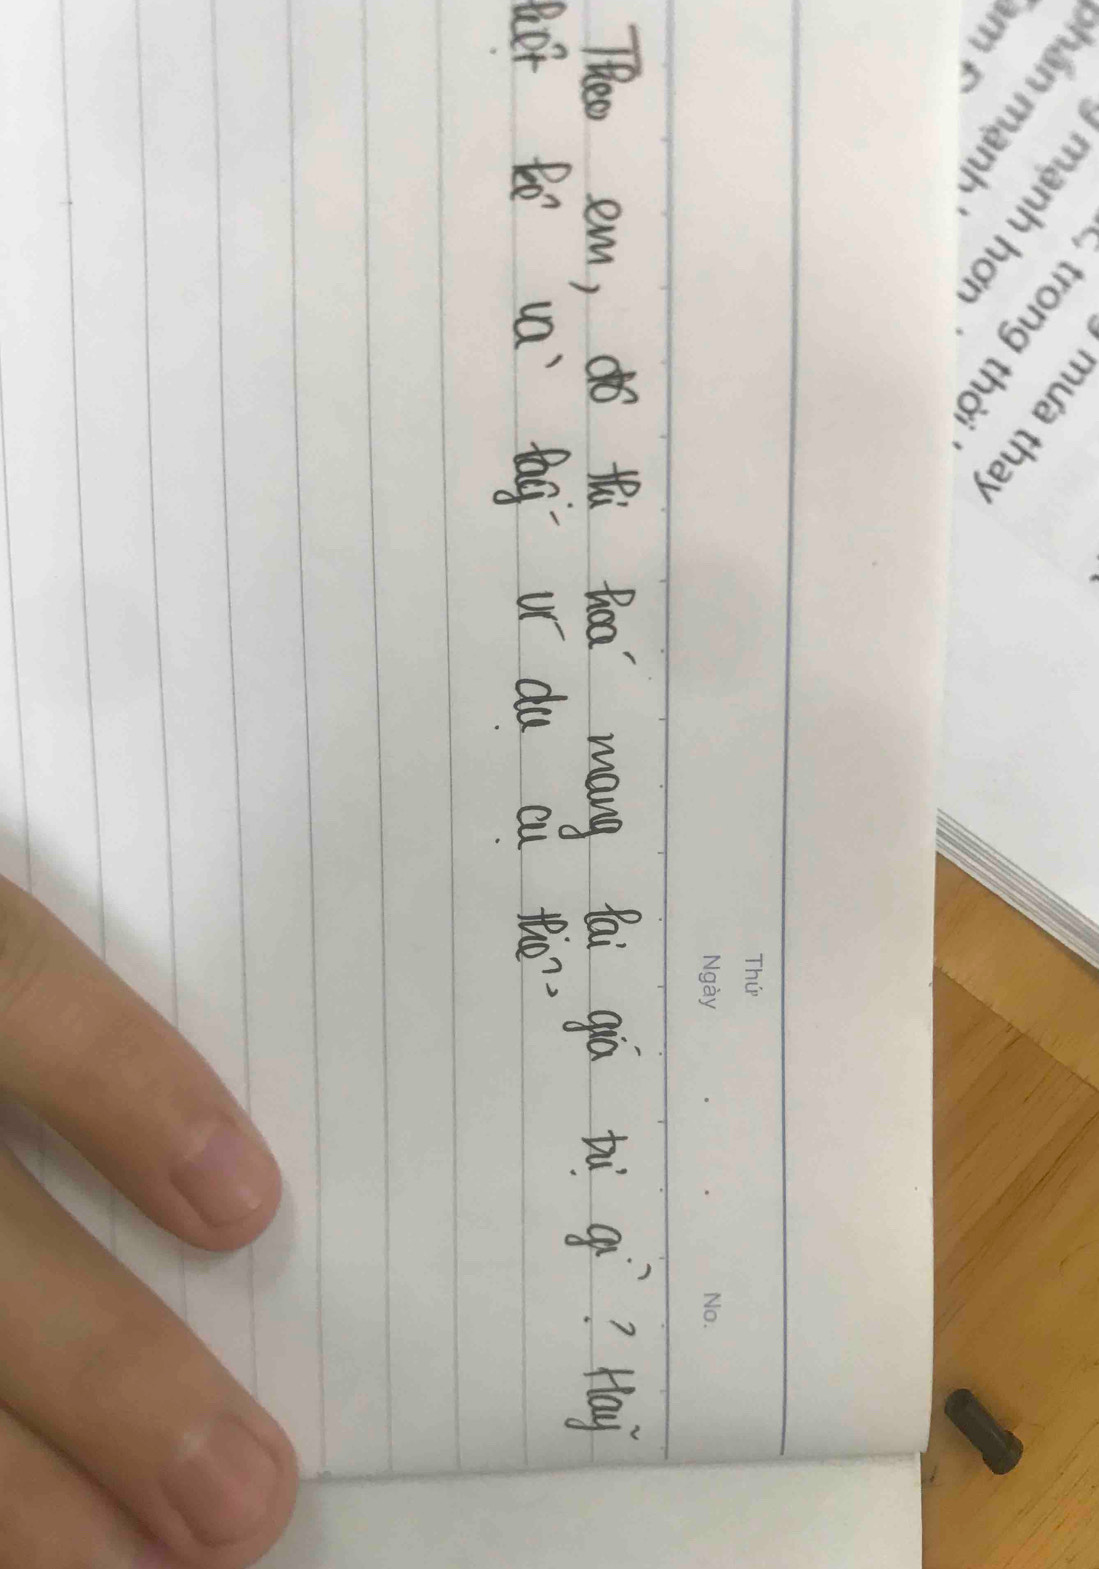 Thứ
Ngày . . No.
Theo em, đô thị hoá mang lại giá trị gì? Hãy
liệt kê và lấy ví dụ cụ thể?
mưa thay
trong thời
mạnh hơn
phần mạnh